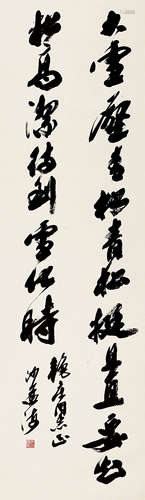 大雪壓青松青松挺且直要知
松高潔待到雪化時
穎庄同志正
沙孟海